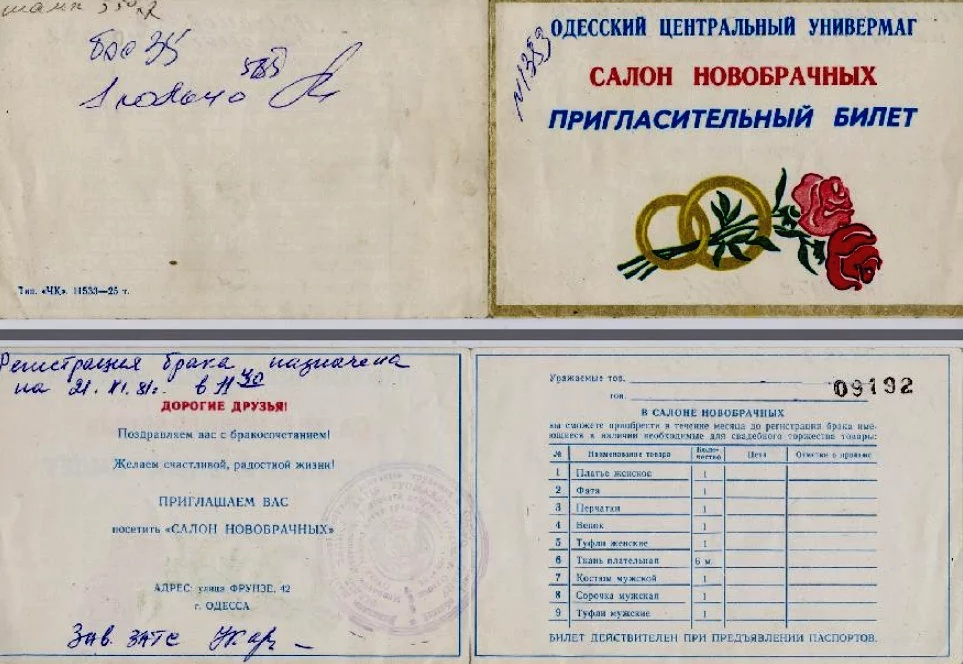 БОС ЗЧ
585
1 кольцо
Тип. «ЧК». 11533—25 т.
№ 1353
ОДЕССКИЙ ЦЕНТРАЛЬНЫЙ УНИВЕРМАГ
САЛОН НОВОБРАЧНЫХ
ПРИГЛАСИТЕЛЬНЫЙ БИЛЕТ
Регистрация брака назначена
на 21. XI. 81г. в 11 30
ДОРОГИЕ ДРУЗЬЯ!
Поздравляем вас с бракосочетанием!
Желаем счастливой, радостной жизни!
ПРИГЛАШАЕМ ВАС
посетить «САЛОН НОВОБРАЧНЫХ»
АДРЕС: улица ФРУНЗЕ, 42
г. ОДЕССА
Зав. ЗАГС
Уважаемые тов.
09192
тов.
В САЛОНЕ НОВОБРАЧНЫХ
вы сможете приобрести в течение месяца до регистрации брака име-
ющиеся в наличии необходимые для свадебного торжества товары:
№ Наименование товара Коли-чество Цена Отметки о продаже
1 Платье женское 1
2 Фата 1
3 Перчатки 1
4 Венок 1
5 Туфли женские 1
6 Ткань плательная 6 м.
7 Костюм мужской 1
8 Сорочка мужская 1
9 Туфли мужские 1
БИЛЕТ ДЕЙСТВИТЕЛЕН ПРИ ПРЕДЪЯВЛЕНИИ ПАСПОРТОВ.